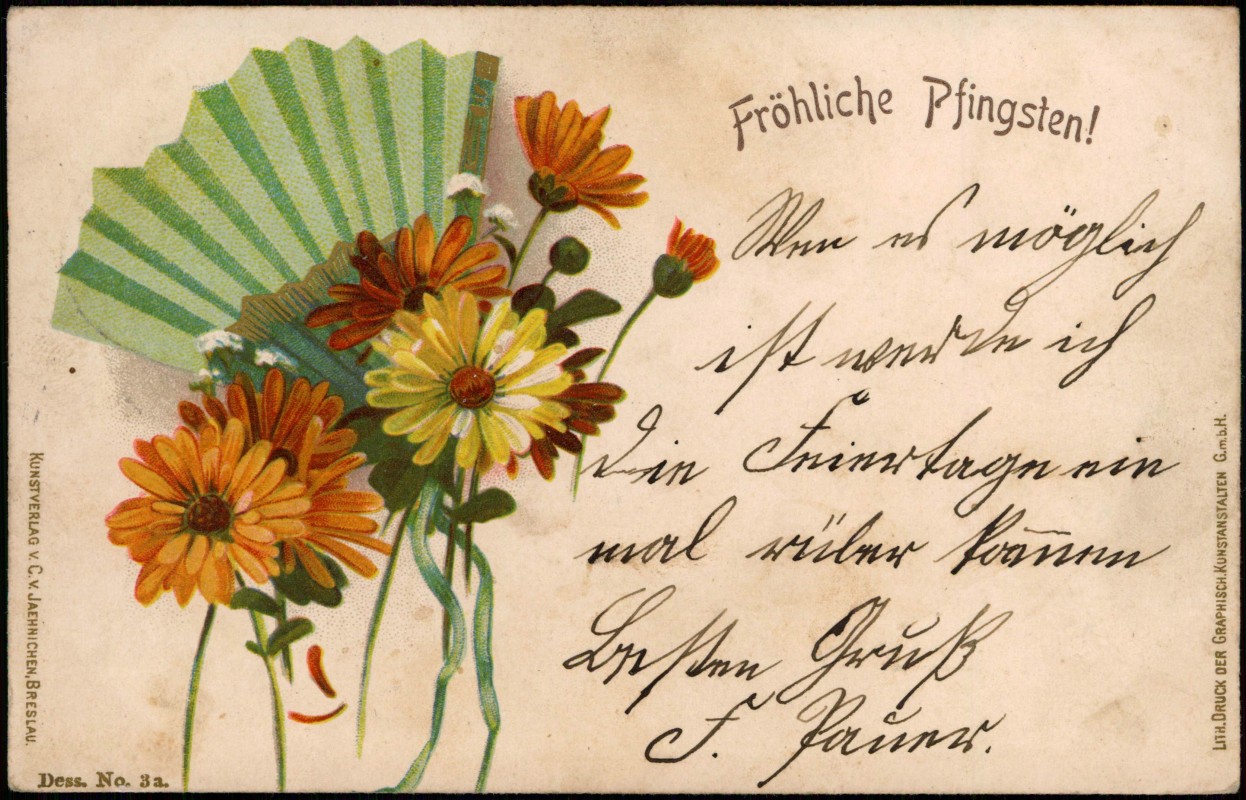 Fröhliche Pfingsten!
Wen es möglich
ist werde ich
die Feiertage ein
mal rüber kom̅en
Besten Gruß
F. Pauer.
KUNSTVERLAG V. C. V. JAEHNICHEN, BRESLAU.
Dess. No. 3a.
LITH. DRUCK DER GRAPHISCH. KUNSTANSTALTEN G.m.b.H.